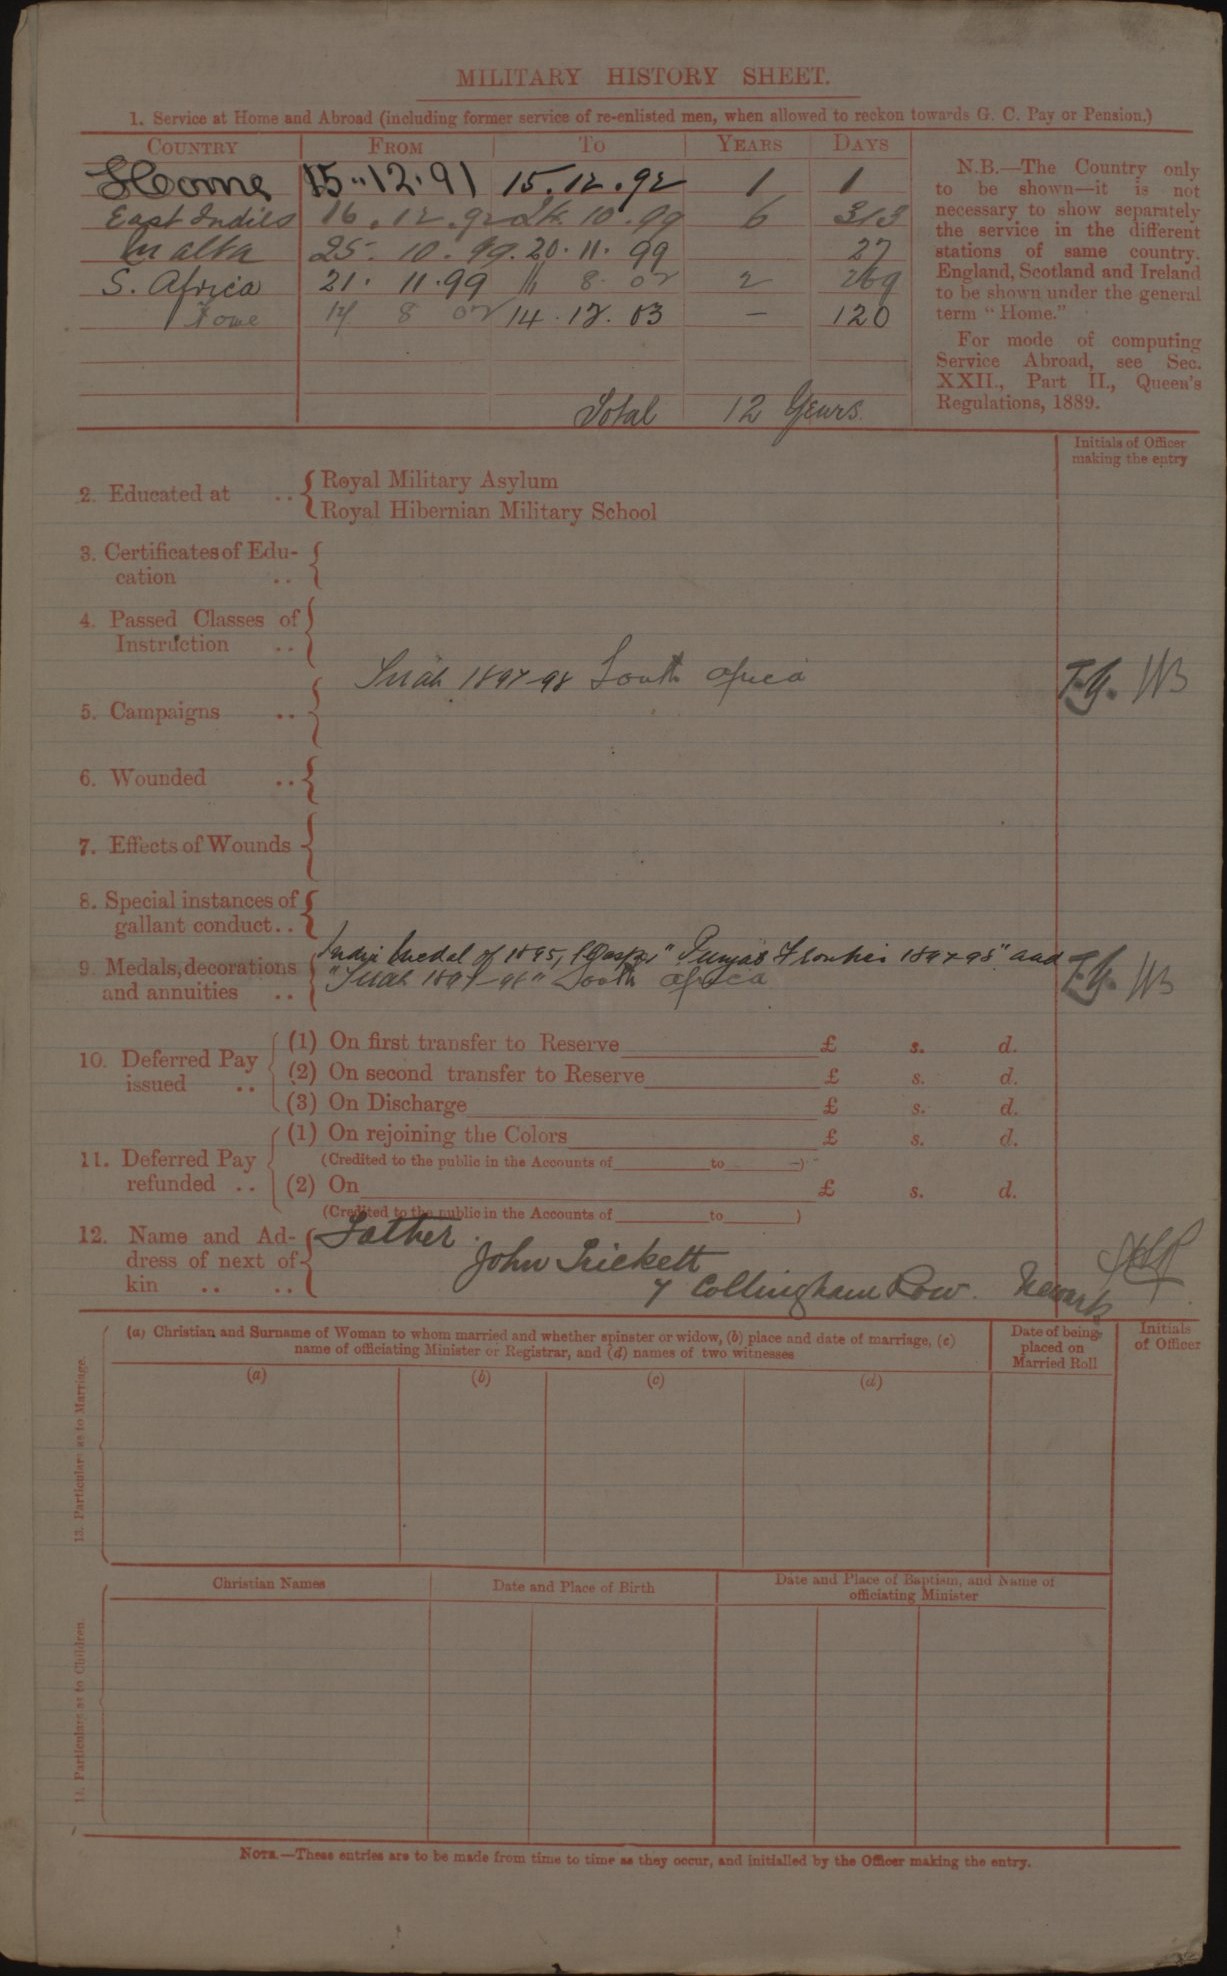 MILITARY HISTORY SHEET.
1. Service at Home and Abroad (including former service of re-enlisted men, when allowed to reckon towards G. C. Pay or Pension.)
COUNTRY FROM TO YEARS DAYS
Home 15.12.91 15.12.92 1 1
East Indies 16.12.92 24.10.99 6 313
Malta 25.10.99. 20.11.99 27
S. Africa 21.11.99 8.02 2 269
Home 8 02 14.12.03 — 120
Total 12 Years.
N.B.—The Country only
to be shown—it is not
necessary to show separately
the service in the different
stations of same country.
England, Scotland and Ireland
to be shown under the general
term "Home."
For mode of computing
Service Abroad, see Sec.
XXII., Part II., Queen's
Regulations, 1889.
Initials of Officer
making the entry
2. Educated at .. Royal Military Asylum
Royal Hibernian Military School
3. Certificates of Edu-
cation ..
4. Passed Classes of
Instruction ..
Tirah 1897-98 South Africa
5. Campaigns ..
6. Wounded ..
7. Effects of Wounds
8. Special instances of
gallant conduct..
India Medal of 1895, Clasps, "Punjab Frontier 1897-98" and
9. Medals, decorations
"Tirah 1897-98" South Africa
and annuities ..
10. Deferred Pay
issued ..
(1) On first transfer to Reserve £ s. d.
(2) On second transfer to Reserve £ s. d.
(3) On Discharge £ s. d.
11. Deferred Pay
refunded ..
(1) On rejoining the Colors £ s. d.
(Credited to the public in the Accounts of to )
(2) On £ s. d.
(Credited to the public in the Accounts of to )
12. Name and Ad-
dress of next of
kin .. ..
Father.
John Prickett
7 Collingham Row. Newark
13. Particulars as to Marriage.
(a) Christian and Surname of Woman to whom married and whether spinster or widow, (b) place and date of marriage, (c)
name of officiating Minister or Registrar, and (d) names of two witnesses
Date of being
placed on
Married Roll
Initials
of Officer
(a) (b) (c) (d)
Particulars as to Children.
Christian Names Date and Place of Birth
Date and Place of Baptism, and Name of
officiating Minister
NOTE.—These entries are to be made from time to time as they occur, and initialled by the Officer making the entry.